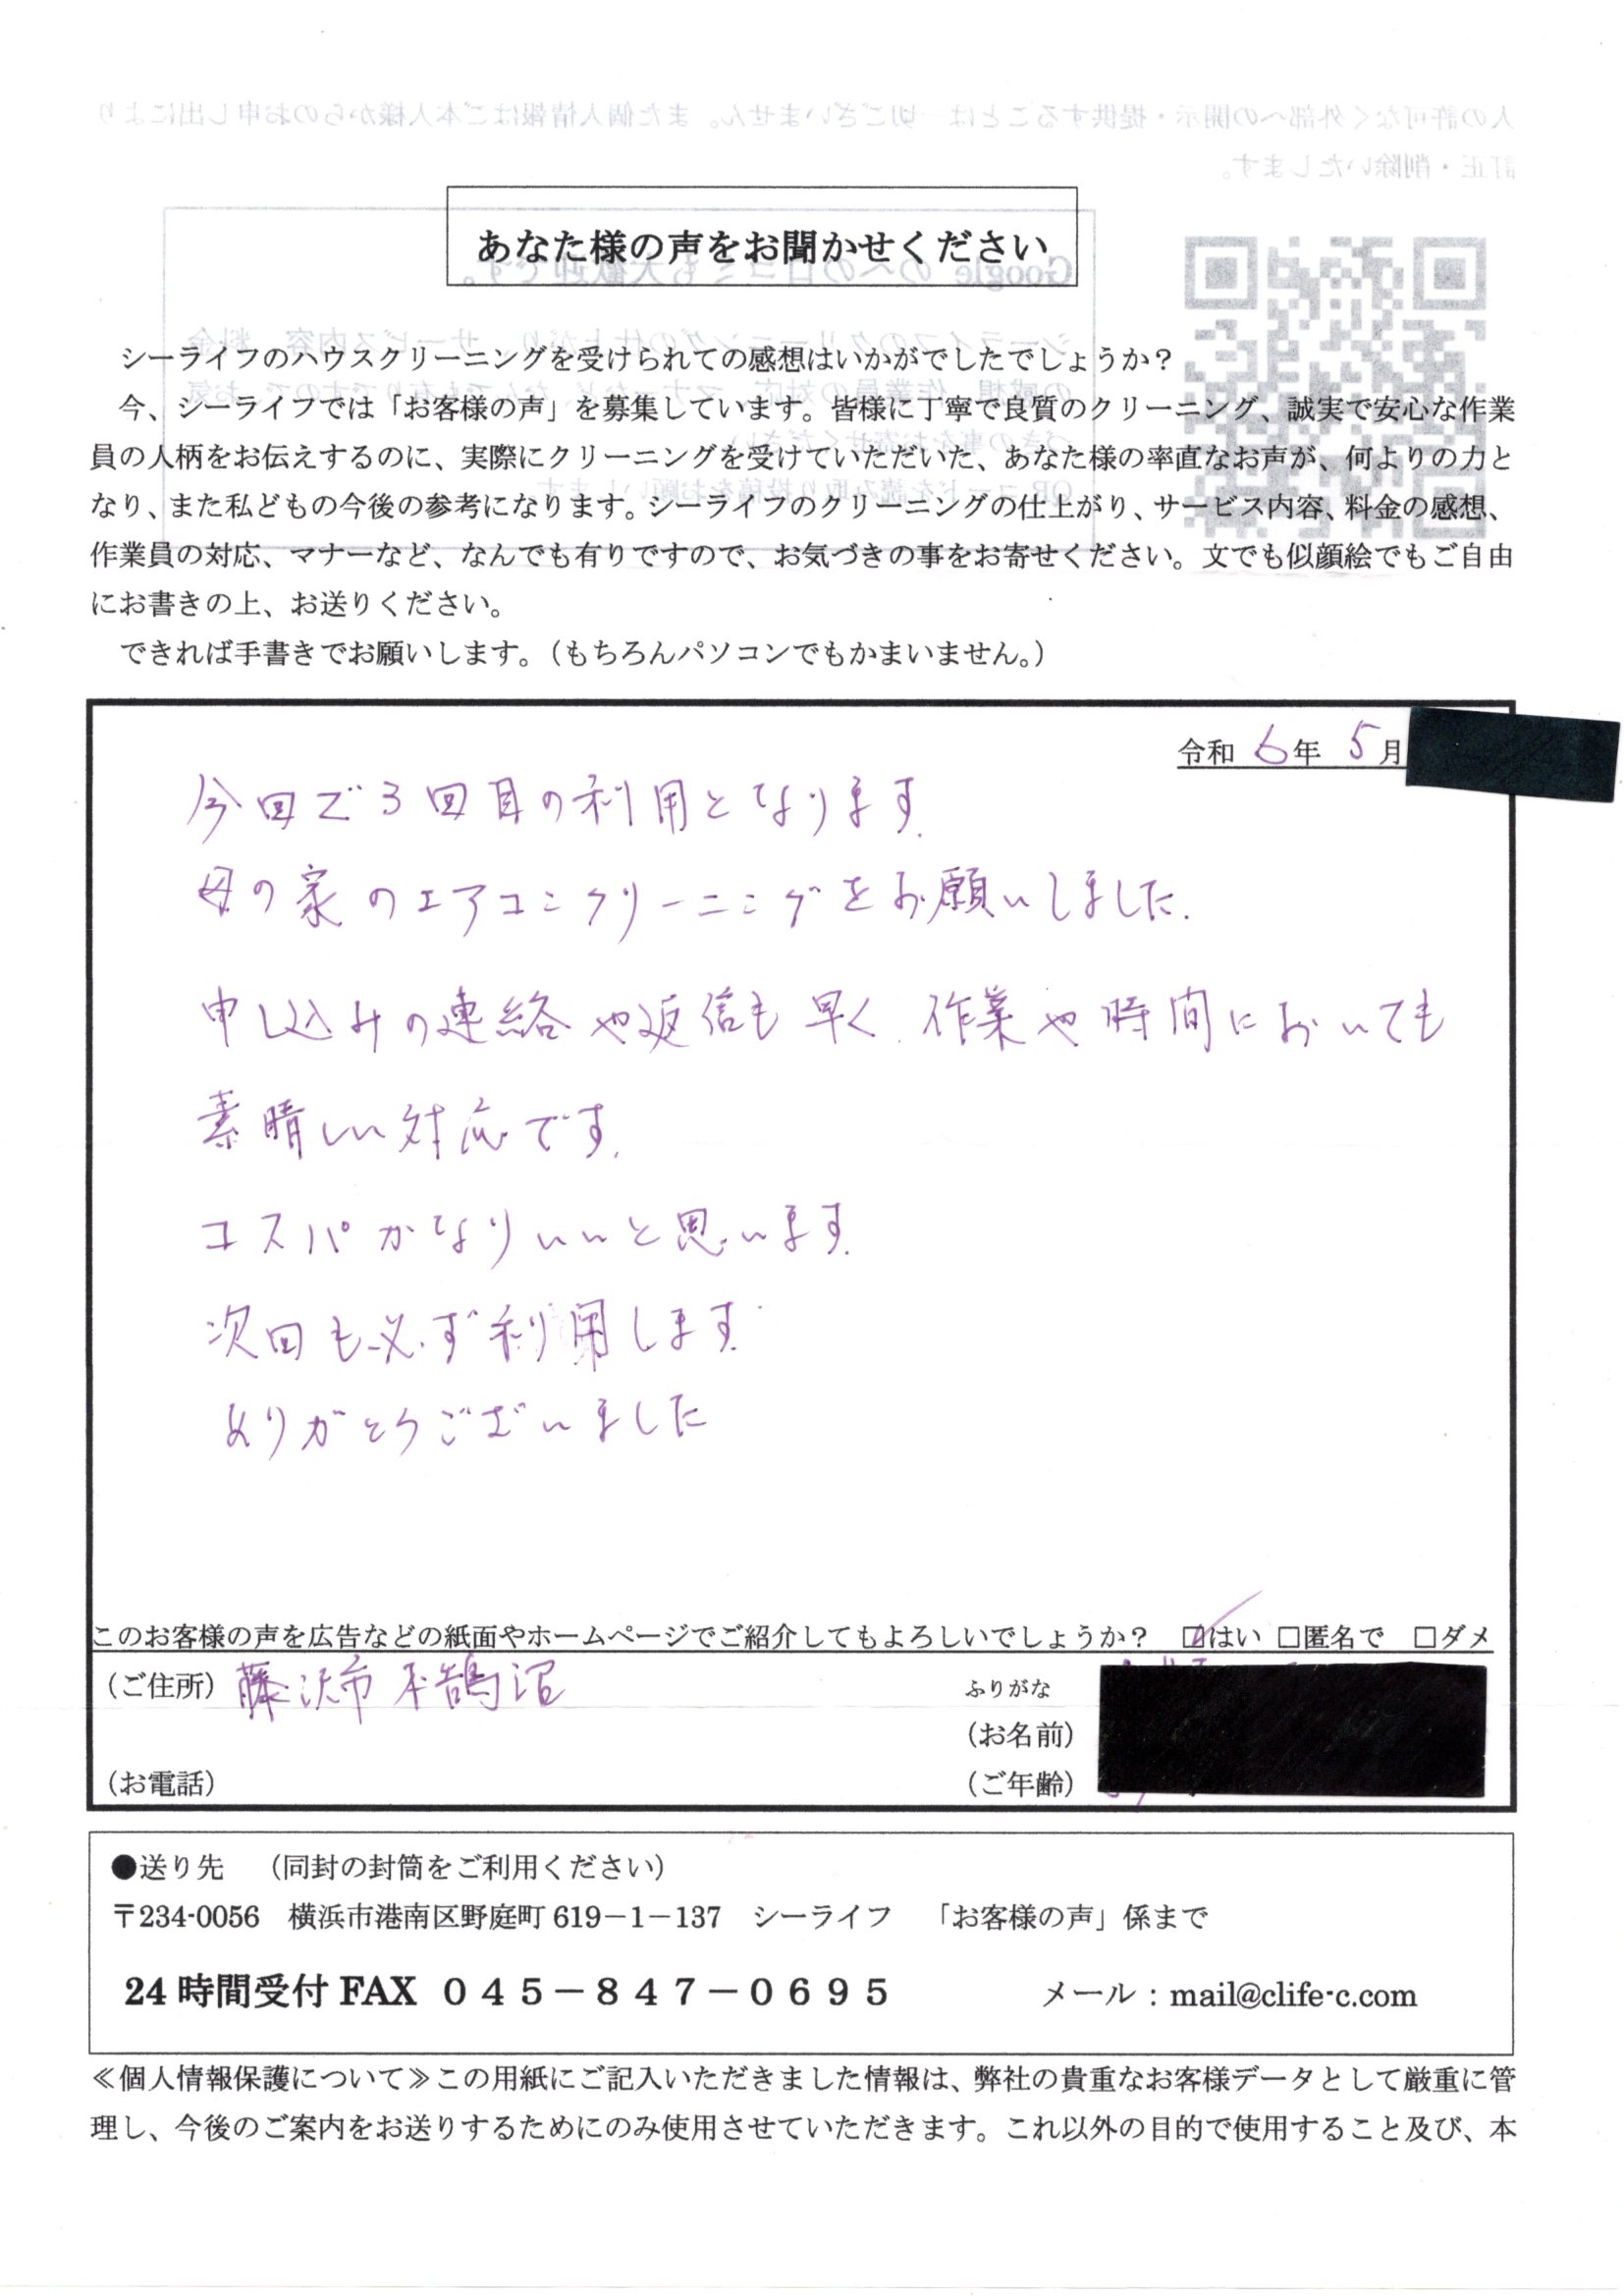 あなた様の声をお聞かせください
シーライフのハウスクリーニングを受けられての感想はいかがでしたでしょうか？
今、シーライフでは「お客様の声」を募集しています。皆様に丁寧で良質のクリーニング、誠実で安心な作業
員の人柄をお伝えするのに、実際にクリーニングを受けていただいた、あなた様の率直なお声が、何よりの力と
なり、また私どもの今後の参考になります。シーライフのクリーニングの仕上がり、サービス内容、料金の感想、
作業員の対応、マナーなど、なんでも有りですので、お気づきの事をお寄せください。文でも似顔絵でもご自由
にお書きの上、お送りください。
できれば手書きでお願いします。（もちろんパソコンでもかまいません。）
令和 6年 5月
今回で3回目の利用となります.
母の家のエアコンクリーニングをお願いしました.
申し込みの連絡や返信も早く.作業や時間においても
素晴しい対応です.
コスパかなりいいと思います.
次回も必ず利用します.
ありがとうございました
このお客様の声を広告などの紙面やホームページでご紹介してもよろしいでしょうか？ ☑はい □匿名で □ダメ
（ご住所）藤沢市本鵠沼
ふりがな
（お名前）
（お電話）
（ご年齢）
●送り先 （同封の封筒をご利用ください）
〒234-0056 横浜市港南区野庭町 619－1－137 シーライフ 「お客様の声」係まで
24 時間受付 FAX ０４５－８４７－０６９５ メール：mail@clife-c.com
≪個人情報保護について≫この用紙にご記入いただきました情報は、弊社の貴重なお客様データとして厳重に管
理し、今後のご案内をお送りするためにのみ使用させていただきます。これ以外の目的で使用すること及び、本